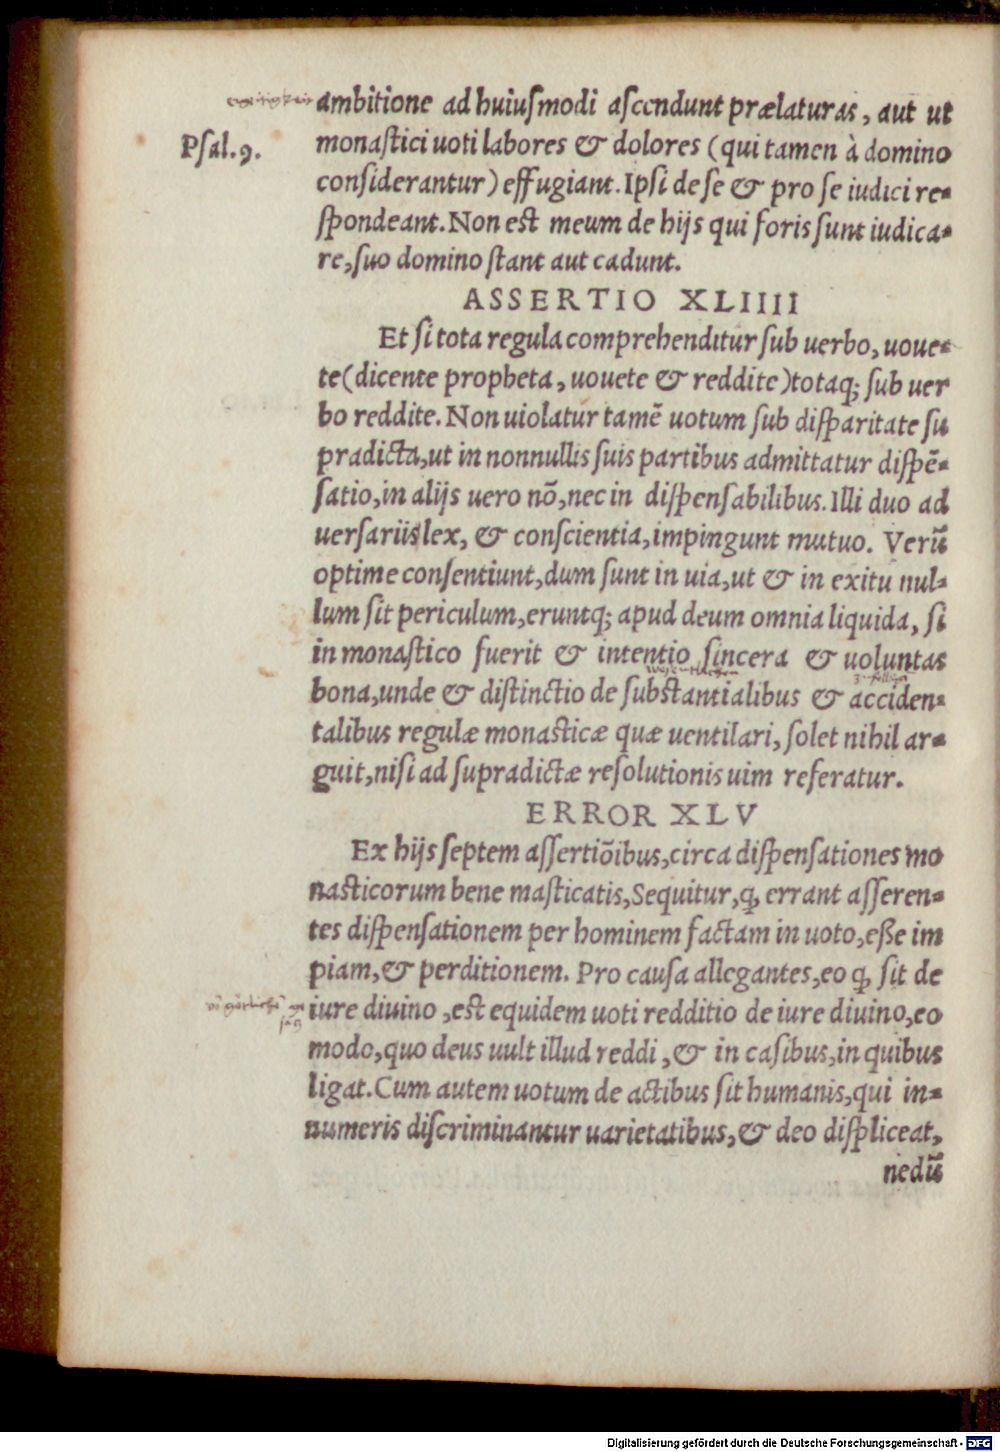 ambitione ad huiusmodi ascendunt prælaturas, aut ut
Psal.9.
monastici uoti labores & dolores (qui tamen à domino
considerantur) effugiant. Ipsi de se & pro se iudici re-
spondeant. Non est meum de hijs qui foris sunt iudica-
re, suo domino stant aut cadunt.
ASSERTIO XLIIII
Et si tota regula comprehenditur sub uerbo, uoue-
te (dicente propheta, uouete & reddite) totaq; sub uer
bo reddite. Non uiolatur tamē uotum sub disparitate su
pradicta, ut in nonnullis suis partibus admittatur dispē-
satio, in alijs uero nō, nec in dispensabilibus. Illi duo ad
uersarijs lex, & conscientia, impingunt mutuo. Verū
optime consentiunt, dum sunt in uia, ut & in exitu nul-
lum sit periculum, eruntq; apud deum omnia liquida, si
in monastico fuerit & intentio sincera & uoluntas
bona, unde & distinctio de substantialibus & acciden-
talibus regulæ monasticæ quæ uentilari, solet nihil ar-
guit, nisi ad supradictæ resolutionis uim referatur.
ERROR XLV
Ex hijs septem assertiōibus, circa dispensationes mo
nasticorum bene masticatis, Sequitur, q, errant asseren-
tes dispensationem per hominem factam in uoto, eße im
piam, & perditionem. Pro causa allegantes, eo q, sit de
iure diuino, est equidem uoti redditio de iure diuino, eo
modo, quo deus uult illud reddi, & in casibus, in quibus
ligat. Cum autem uotum de actibus sit humanis, qui in-
numeris discriminantur uarietatibus, & deo displiceat,
nedū
Digitalisierung gefördert durch die Deutsche Forschungsgemeinschaft - DFG